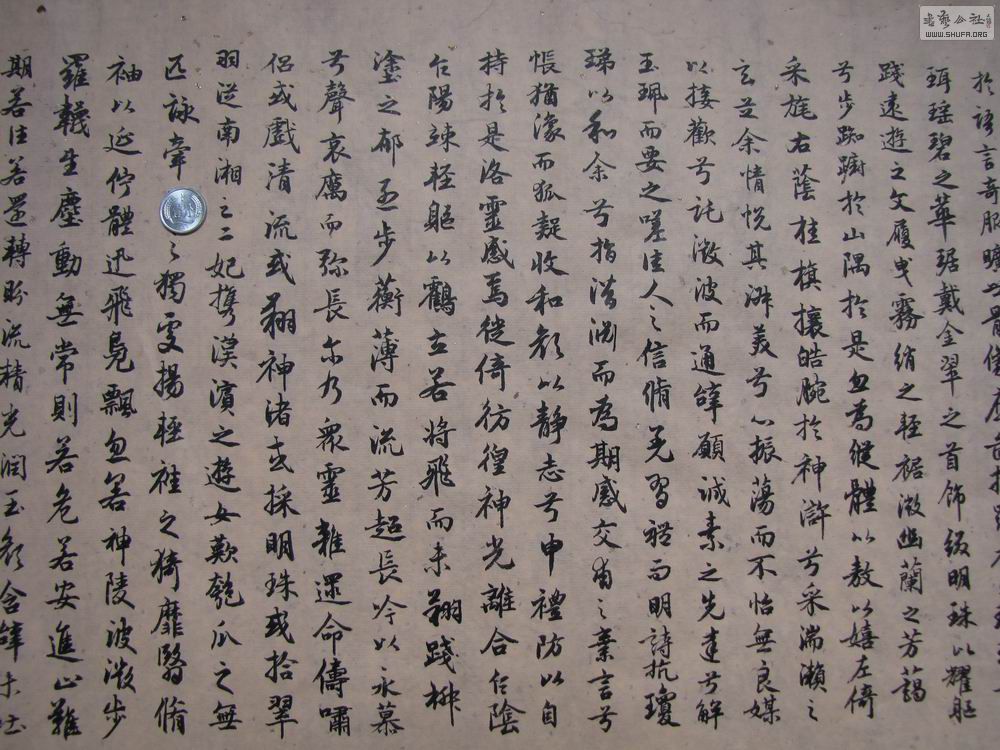 於語言奇服曠世骨像應
珥瑤碧之華琚戴金翠之首飾綴明珠以耀軀
踐遠遊之文履曳霧綃之輕裾微幽蘭之芳藹
兮步踟躕於山隅於是忽焉縱體以敖以嬉左倚
采旄右蔭桂旗攘皓腕於神滸兮采湍瀨之
玄芝余情悅其淑美兮心振蕩而不怡無良媒
以接歡兮託微波而通辭願誠素之先達兮解
玉珮而要之嗟佳人之信脩羌習禮而明詩抗瓊
珶以和余兮指潛淵而為期感交甫之棄言兮
悵猶豫而狐疑收和顏以靜志兮申禮防以自
持於是洛靈感焉徙倚彷徨神光離合乍陰
乍陽竦輕軀以鶴立若將飛而未翔踐椒
塗之郁烈步蘅薄而流芳超長吟以永慕
兮聲哀厲而彌長爾乃眾靈雜遝命儔嘯
侶或戲清流或翔神渚或採明珠或拾翠
羽從南湘之二妃攜漢濱之遊女歎匏瓜之無
匹詠牽之獨處揚輕袿之猗靡翳脩
袖以延佇體迅飛鳧飄忽若神陵波微步
羅韈生塵動無常則若危若安進止難
期若往若還轉盼流精光潤玉顏含辭未吐
書藝公社
WWW.SHUFA.ORG